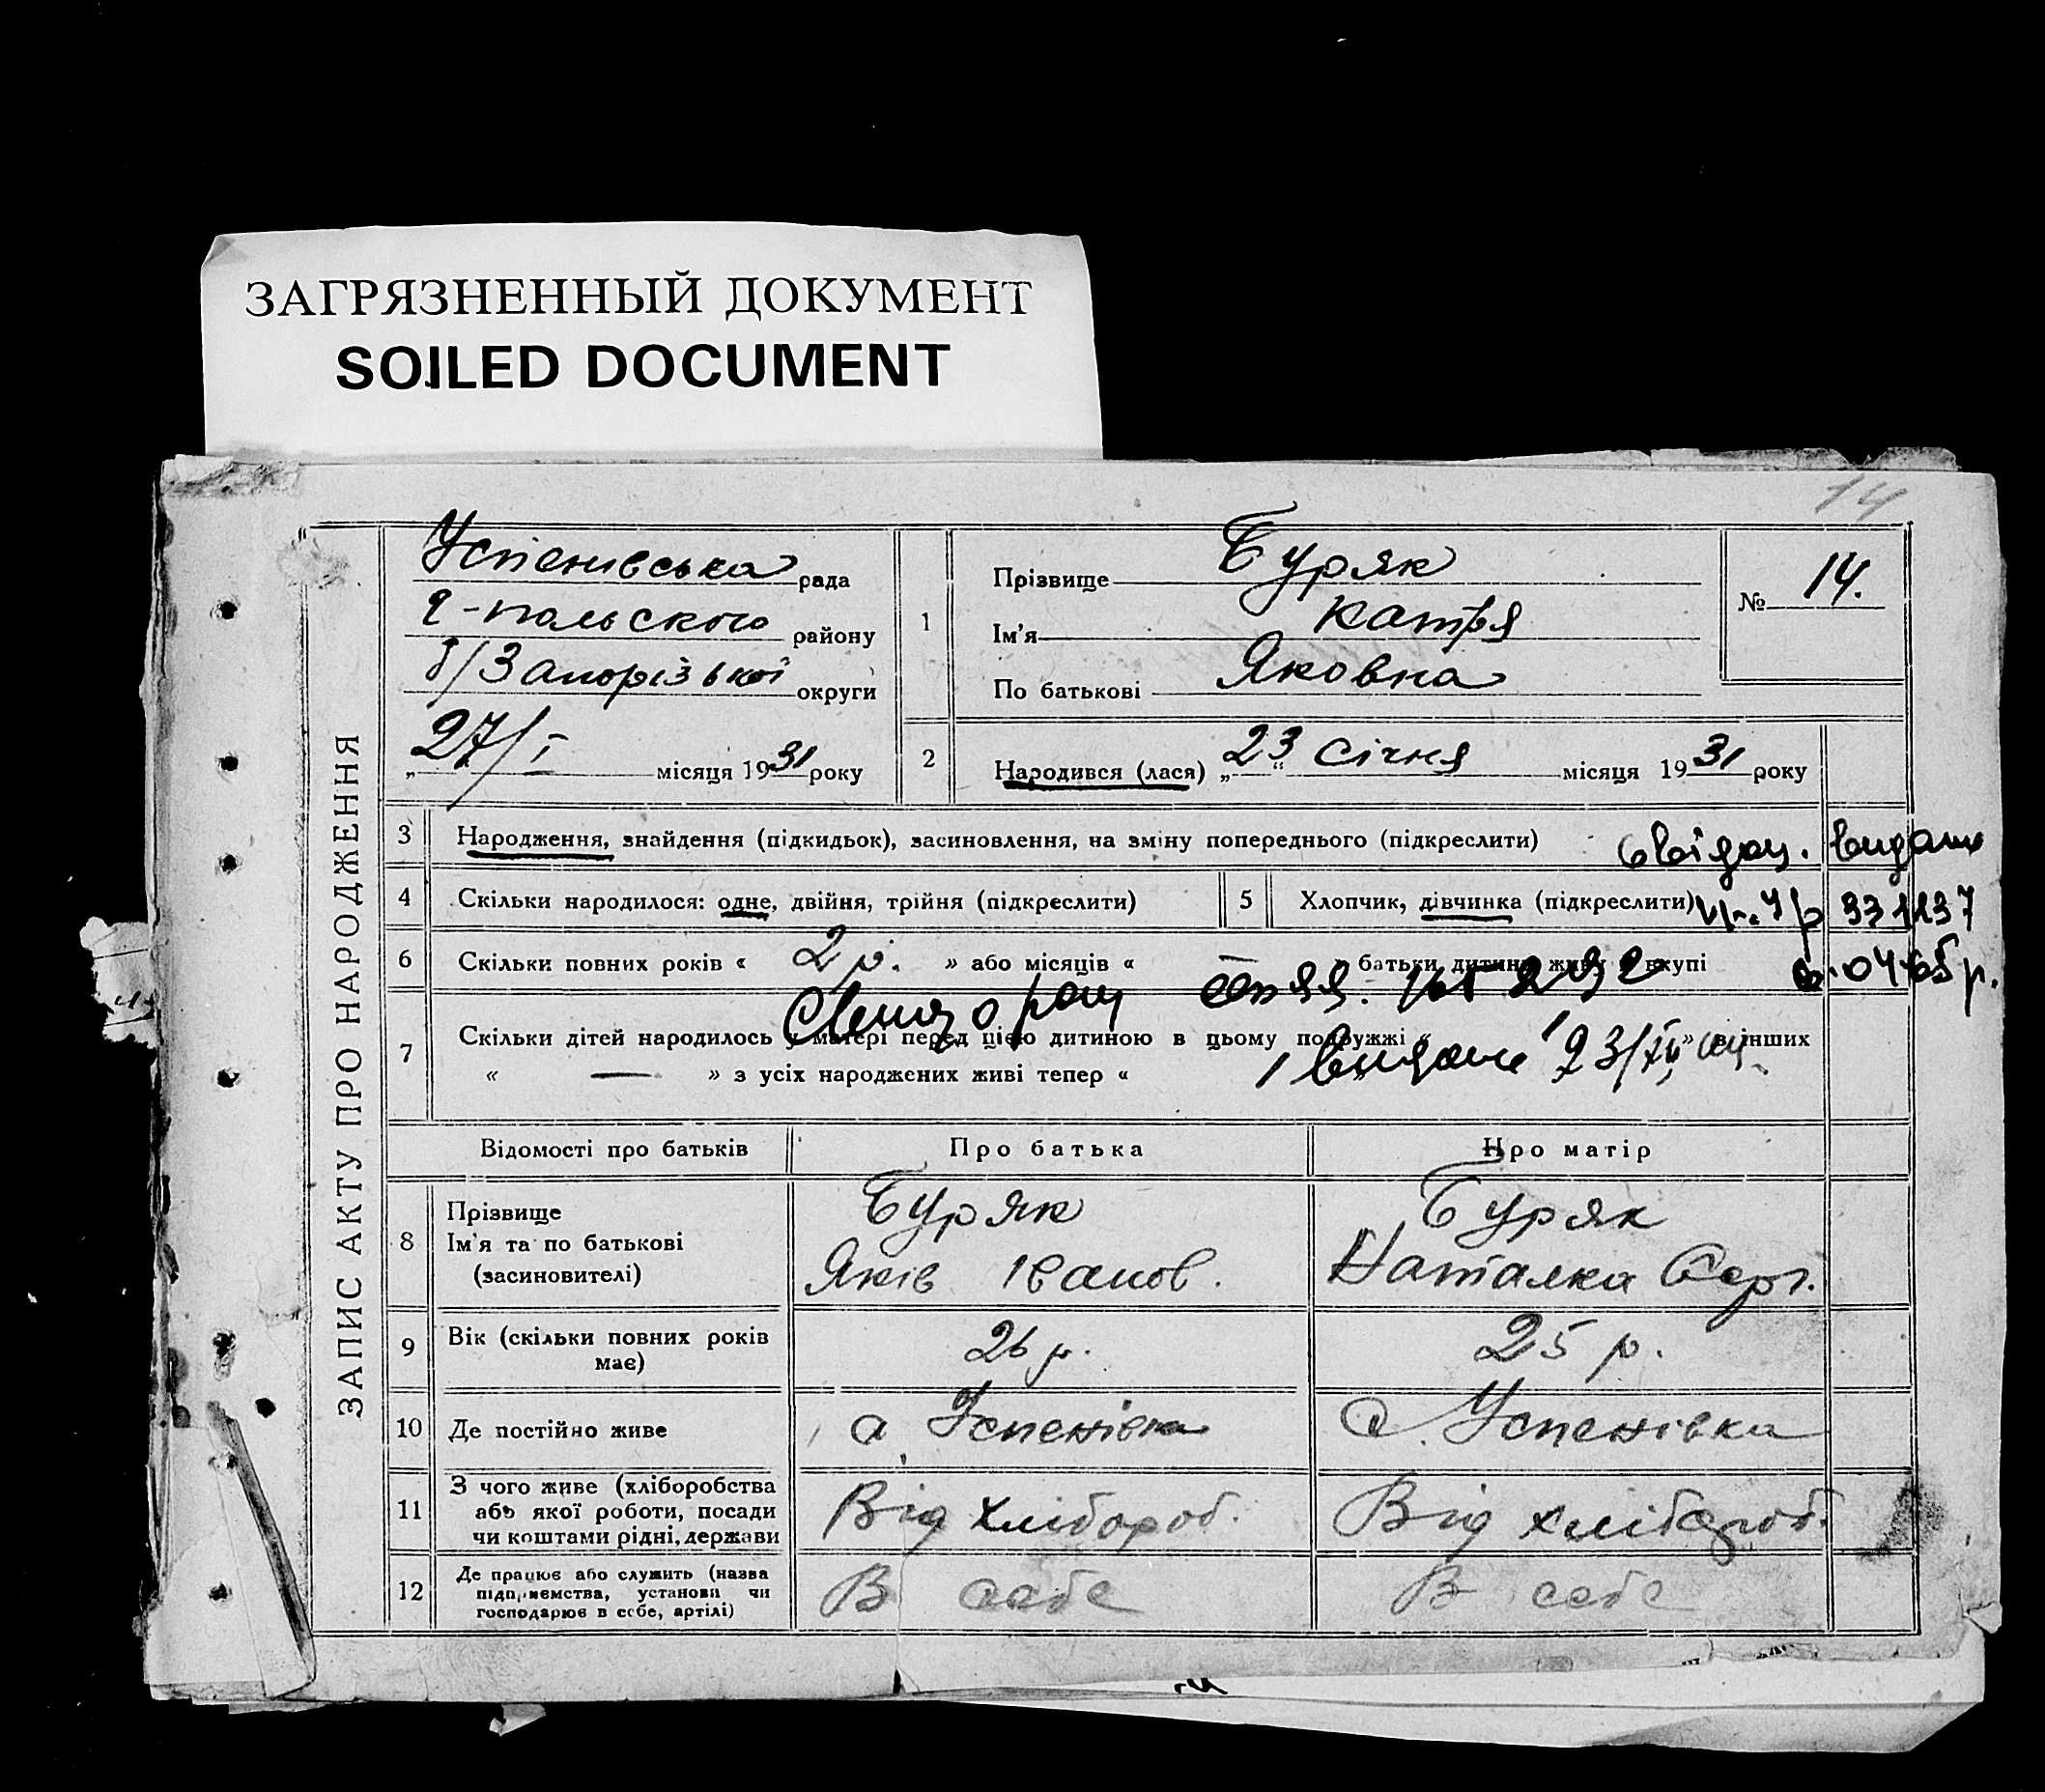 ЗАГРЯЗНЕННЫЙ ДОКУМЕНТ
SOILED DOCUMENT
14
ЗАПИС АКТУ ПРО НАРОДЖЕННЯ
Успенивська рада
-польского району
б/Запорізької округи
„27/I місяця 1931 року
1
Прізвище Буряк
Ім'я Катря
По батькові Яковна
№ 14.
2
Народився (лася) „23“ січня місяця 1931 року
3 Народження, знайдення (підкидьок), засиновлення, на зміну попереднього (підкреслити)
свідоц. видано
4 Скільки народилося: одне, двійня, трійня (підкреслити)
5 Хлопчик, дівчинка (підкреслити)
331137
6 Скільки повних років « 2 р. » або місяців « — » батьки дитини живу вкупі
0465 р.
7 Скільки дітей народилось у матері перед цією дитиною в цьому подружжі « » в інших
« — » з усіх народжених живі тепер « 1
видано 23/IV
Відомості про батьків
Про батька
Про матір
8 Прізвище
Ім'я та по батькові
(засиновителі)
Буряк
Яків Іванов.
Буряк
Наталка Серг.
9 Вік (скільки повних років
має)
26 р.
25 р.
10 Де постійно живе
с. Успенівка
с. Успенівка
11 З чого живе (хліборобства
або якої роботи, посади
чи коштами рідні, держави
Від хлібороб.
Від хлібороб.
12 Де працює або служить (назва
підприємства, установи чи
господарює в себе, артілі)
В себе
В себе